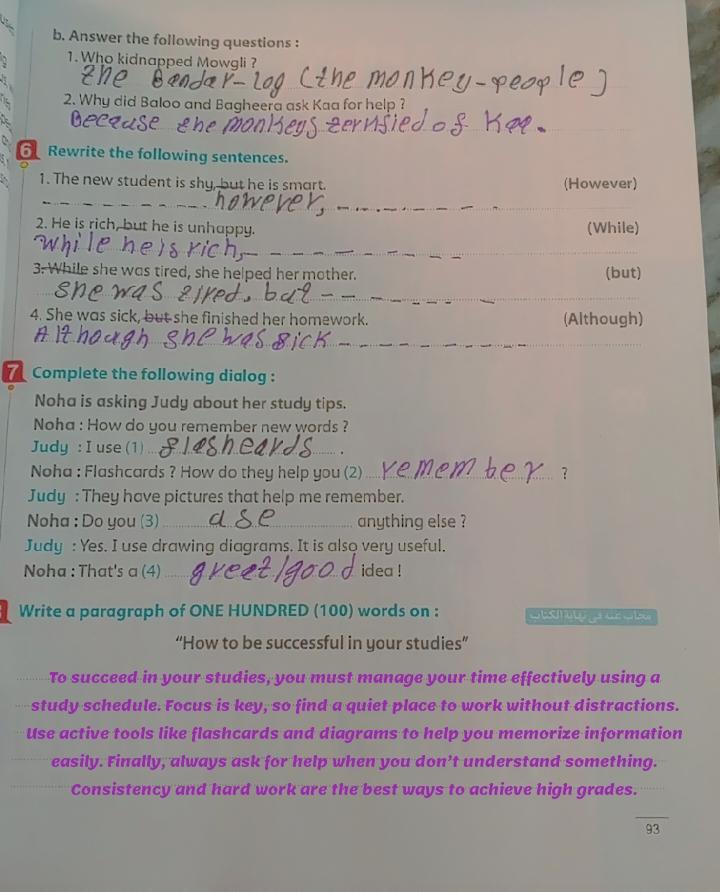 b. Answer the following questions :
1. Who kidnapped Mowgli ?
the Bandar-log (the monkey-people)
2. Why did Baloo and Bagheera ask Kaa for help ?
Because the monkeys terrified of Kaa.
6 Rewrite the following sentences.
1. The new student is shy, but he is smart. (However)
however,
2. He is rich, but he is unhappy. (While)
While he is rich,
3. While she was tired, she helped her mother. (but)
she was tired, but
4. She was sick, but she finished her homework. (Although)
Although she was sick
7 Complete the following dialog :
Noha is asking Judy about her study tips.
Noha : How do you remember new words ?
Judy : I use (1) flashcards .
Noha : Flashcards ? How do they help you (2) remember ?
Judy : They have pictures that help me remember.
Noha : Do you (3) use anything else ?
Judy : Yes. I use drawing diagrams. It is also very useful.
Noha : That's a (4) great/good idea !
Write a paragraph of ONE HUNDRED (100) words on : مجاب عنه في نهاية الكتاب
"How to be successful in your studies"
To succeed in your studies, you must manage your time effectively using a
study schedule. Focus is key, so find a quiet place to work without distractions.
Use active tools like flashcards and diagrams to help you memorize information
easily. Finally, always ask for help when you don't understand something.
Consistency and hard work are the best ways to achieve high grades.
93